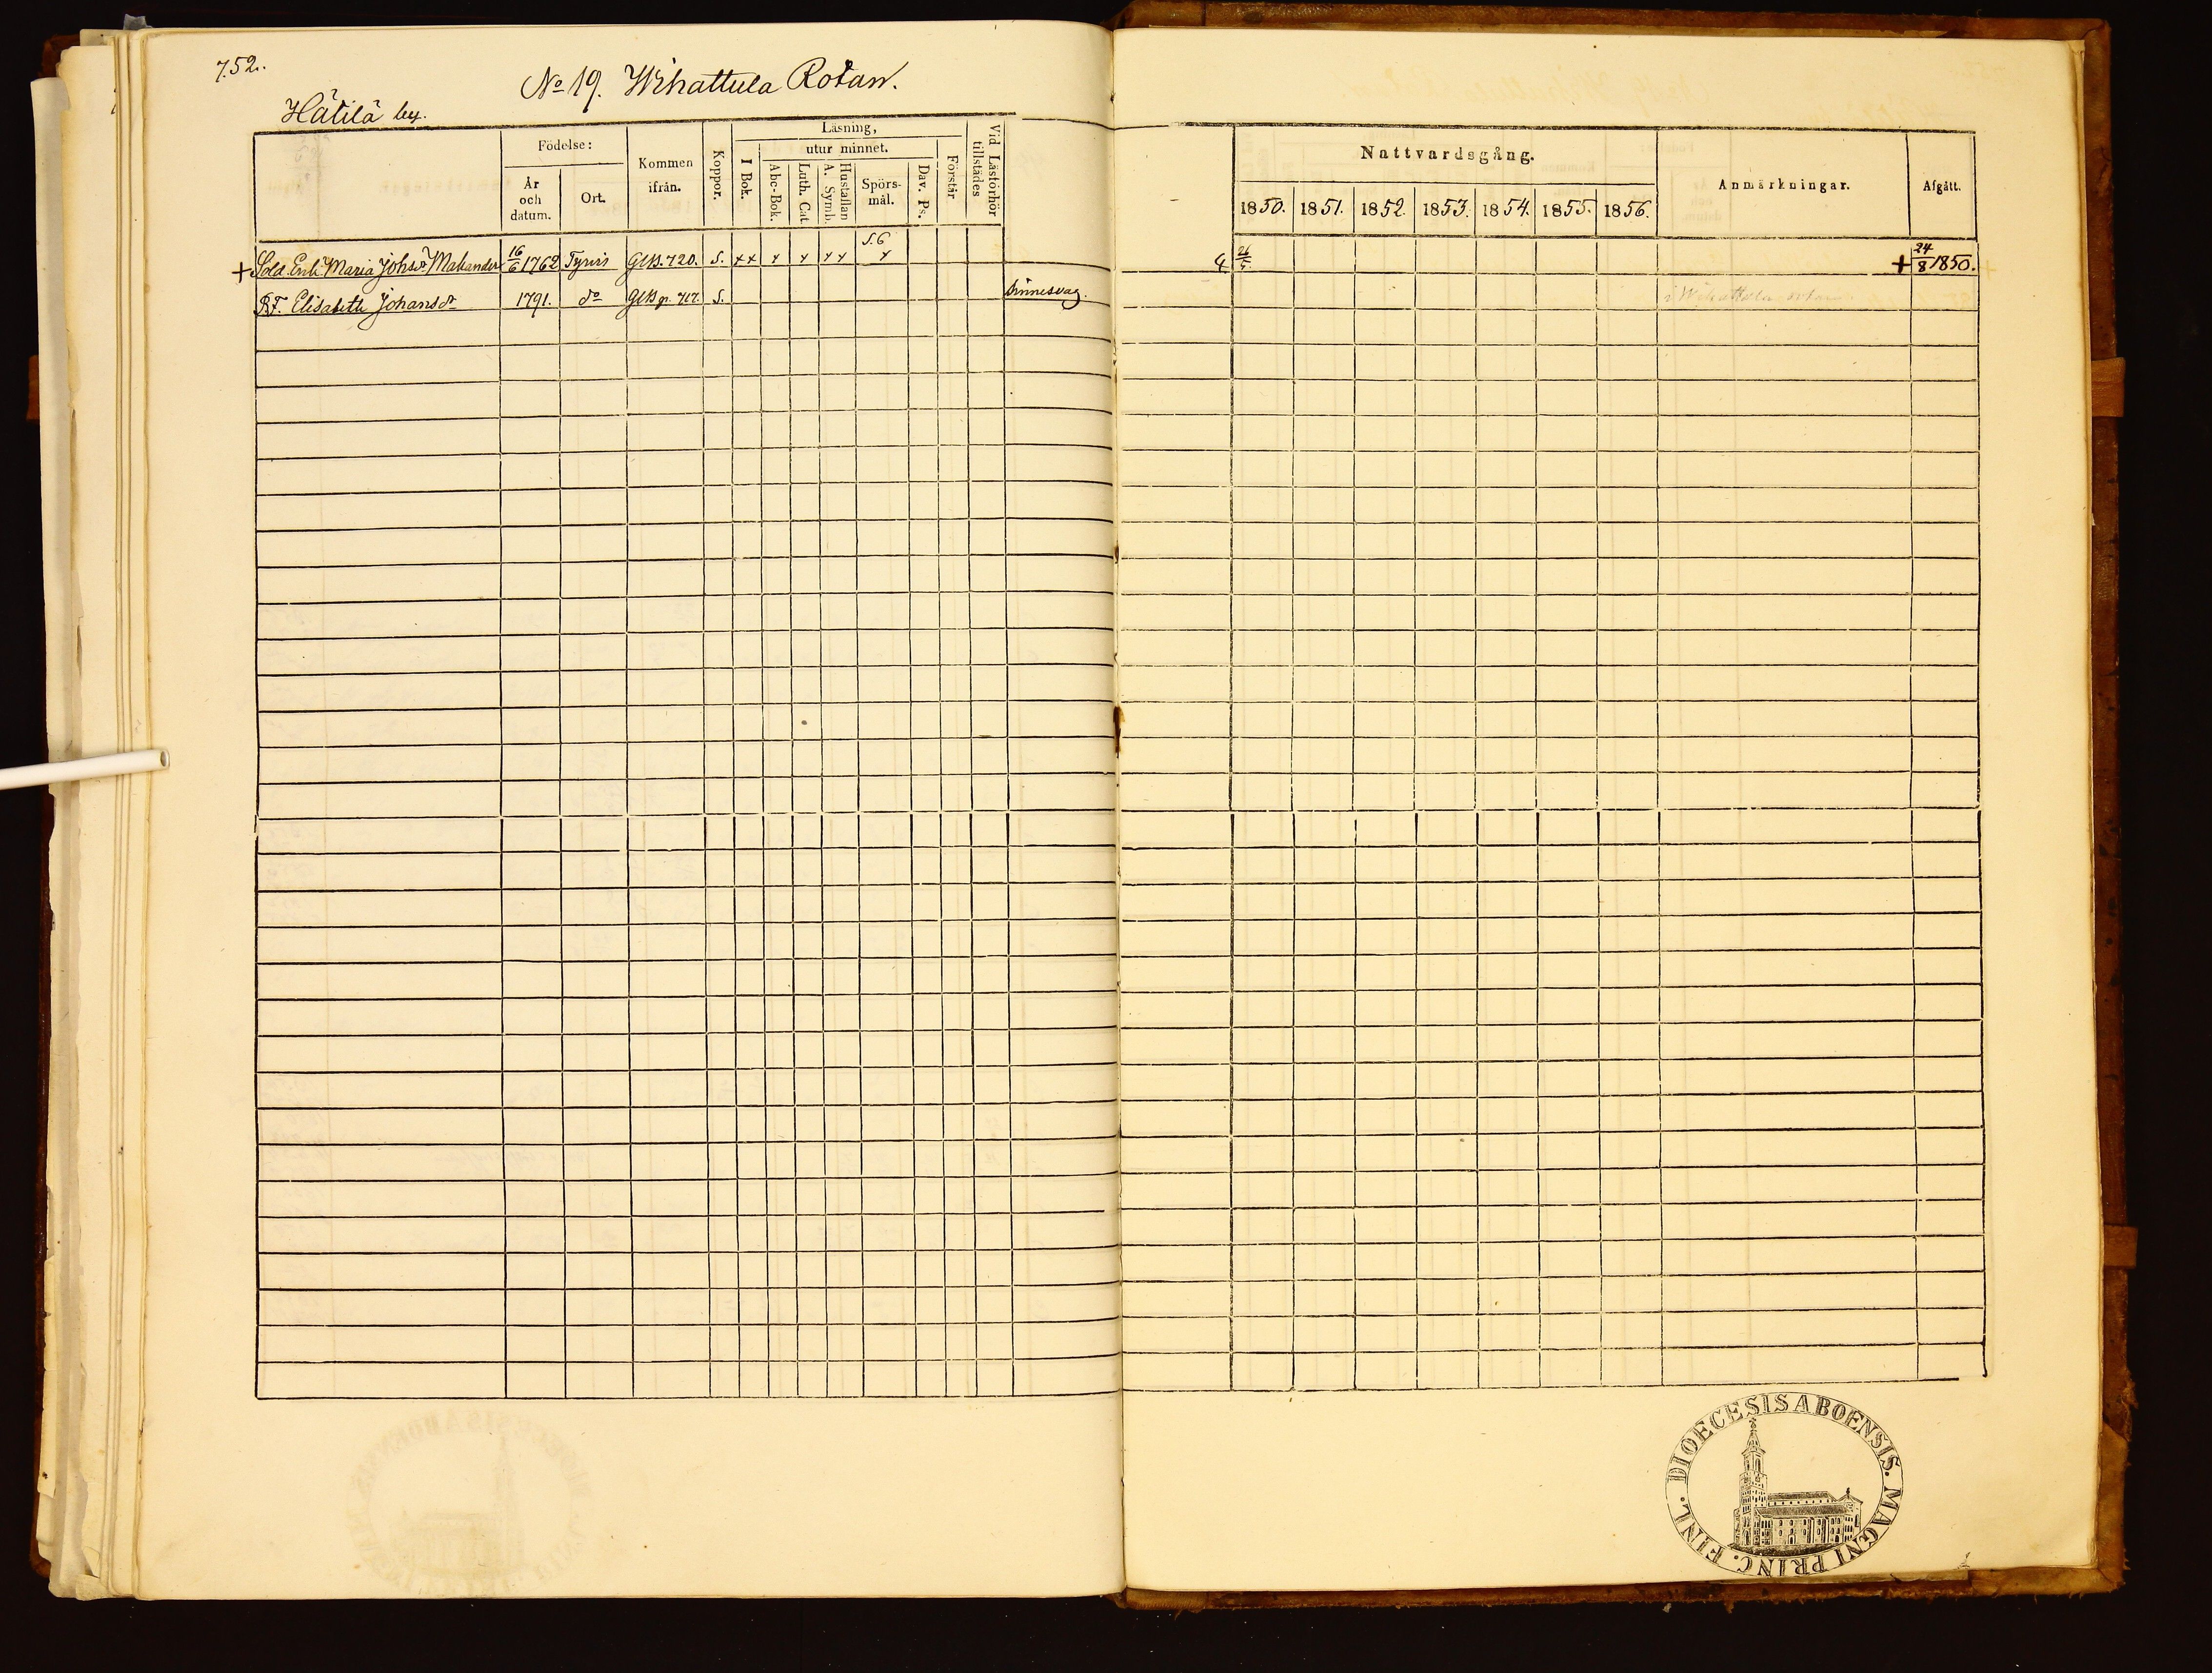 752.
No 19. Wihattula Rotan.
Hätilä by.
Födelse:
År och datum.
Ort.
Kommen ifrån.
Koppor.
Läsning,
I Bok.
utur minnet.
Abc-Bok.
Luth. Cat.
Hustaflan A. Symb.
Spörs-mål.
Dav. Ps.
Förstår
Vid Läsförhör tillstädes
Nattvardsgång.
1850. 1851. 1852. 1853. 1854. 1855. 1856.
Anmärkningar.
Afgått.
+ Sold. Enk. Maria Johsdr Makander 16/6 1762 Tyrvis GKB. 720. S. xx x x xx S.6 x 4 26/5. + 24/8 1850.
Elisabeth Johansdr 1791. do GKB p. 717. S. Sinnesvag. i Wihattula rotan
DIOECESIS ABOENSIS. MAGNI PRINC. FINL.